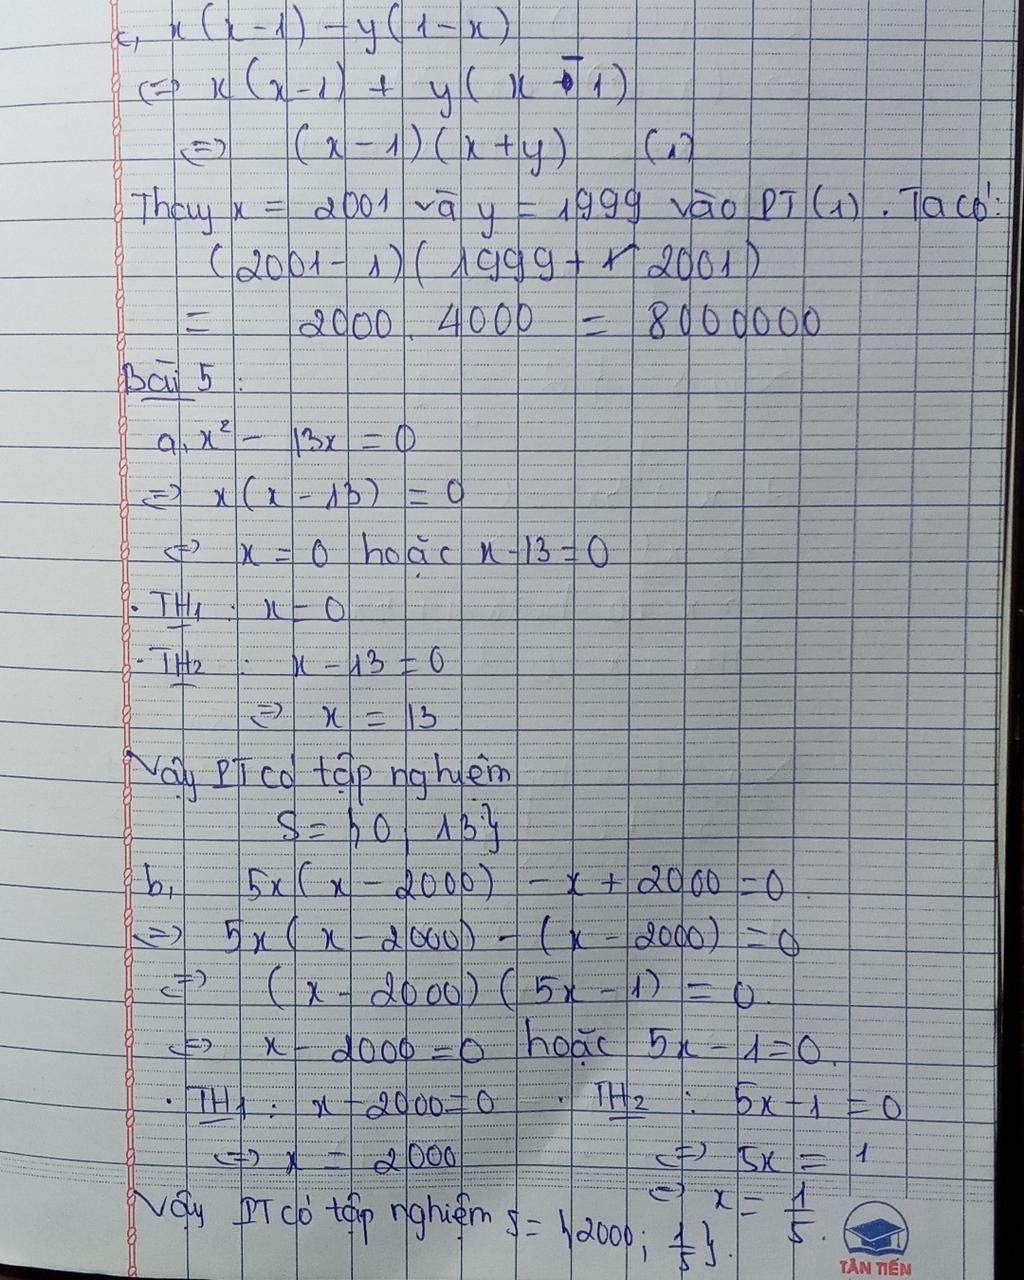 c, x(x-1) - y(1-x)
<=> x(x-1) + y(x - 1)
<=> (x-1)(x+y) (1)
Thay x = 2001 và y = 1999 vào PT(1). Ta có:
(2001-1)(1999+ 2001)
= 2000. 4000 = 8000000
Bài 5 :
a, x² - 13x = 0
<=> x(x-13) = 0
<=> x = 0 hoặc x-13=0
. TH1 : x = 0
. TH2 : x - 13 = 0
=> x = 13
Vậy PT có tập nghiệm
S = {0; 13}
b, 5x(x-2000) - x + 2000 = 0
<=> 5x(x-2000) - (x-2000) = 0
<=> (x-2000)(5x-1) = 0.
<=> x-2000=0 hoặc 5x-1=0.
. TH1 : x-2000=0 . TH2 : 5x-1 = 0
<=> x = 2000 <=> 5x = 1
<=> x = 1/5.
Vậy PT có tập nghiệm S = {2000; 1/5}.
TÂN TIẾN